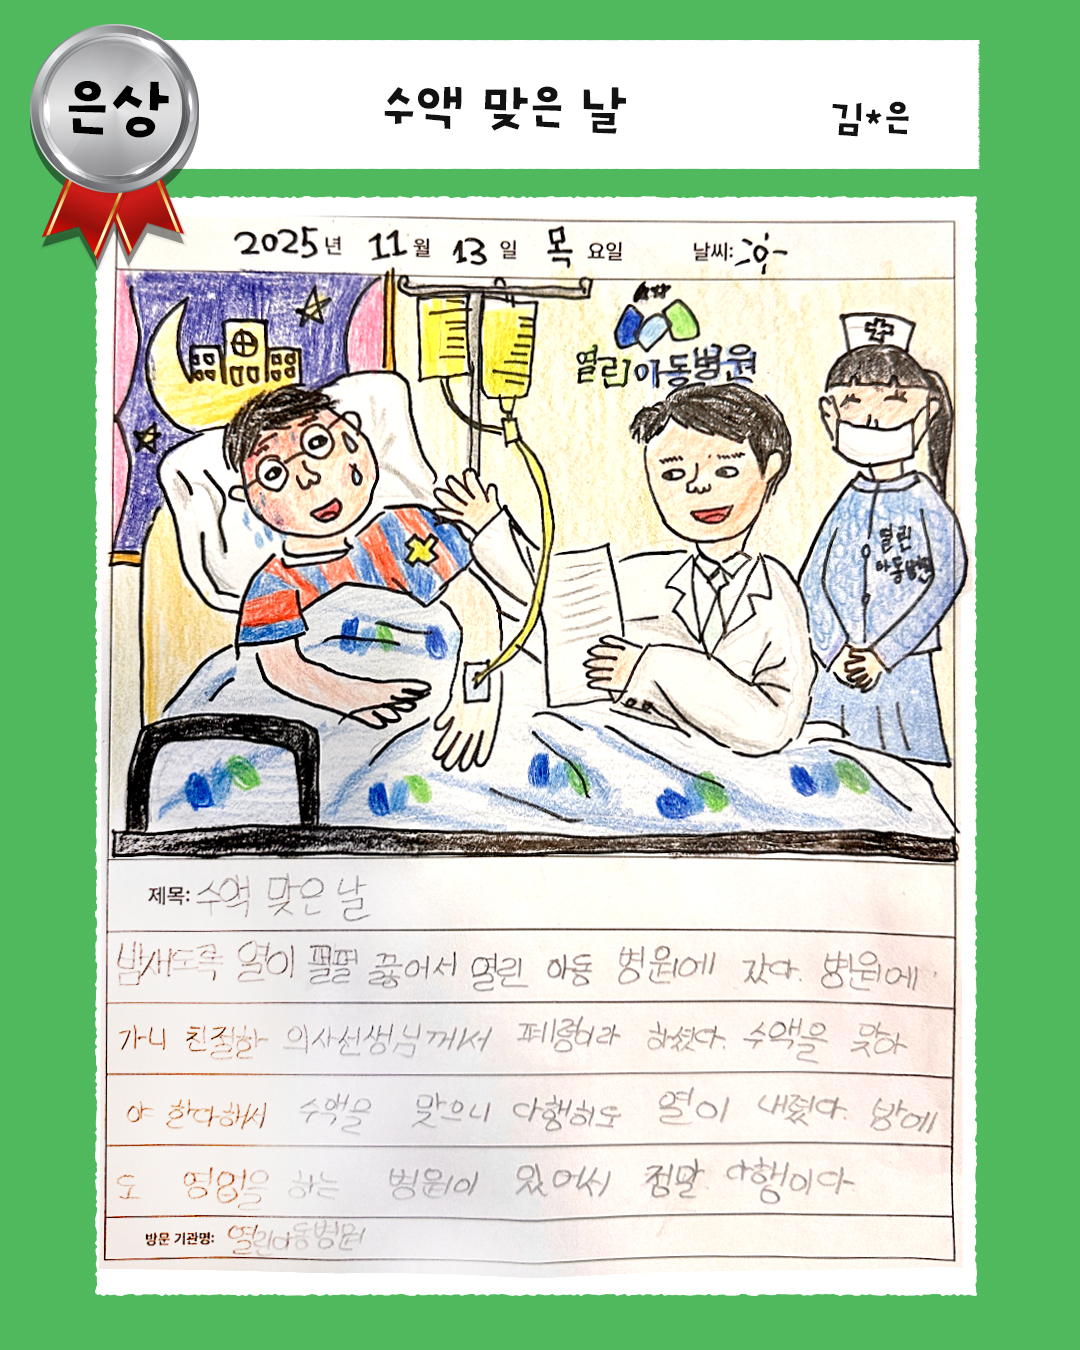 은상
수액 맞은 날
김*은
2025년 11월 13일 목요일 날씨:
열린아동병원
열린
아동병원
제목: 수액 맞은 날
밤새도록 열이 펄펄 끓어서 열린 아동 병원에 갔다. 병원에
가니 친절한 의사선생님께서 폐렴이라 하셨다. 수액을 맞아
야 한다해서 수액을 맞으니 다행히도 열이 내렸다. 밤에
도 영업을 하는 병원이 있어서 정말 다행이다.
방문 기관명: 열린아동병원